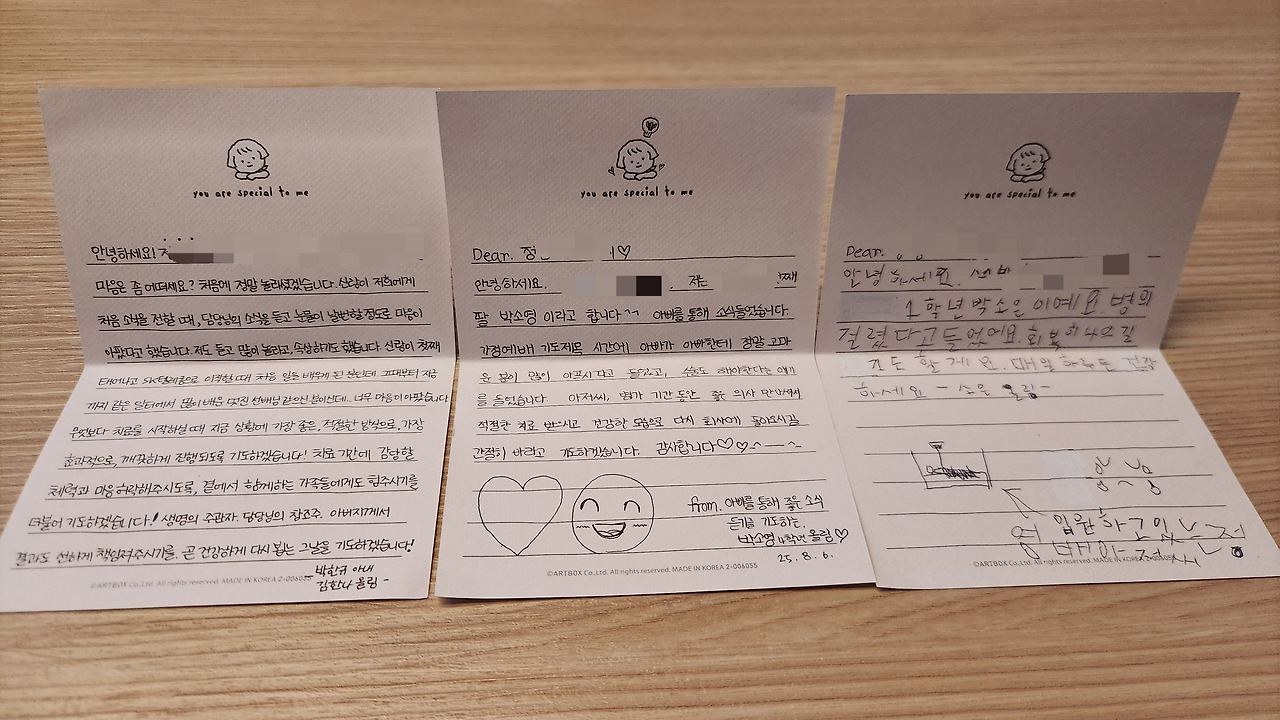 you are special to me
안녕하세요!
마음은 좀 어떠세요? 처음에 정말 놀라셨겠습니다. 신랑이 저희에게
처음 소식을 전할 때, 담당님의 소식을 듣고 눈물이 날뻔할 정도로 마음이
아팠다고 했습니다. 저도 듣고 많이 놀라고, 속상하기도 했습니다. 신랑이 첫째
태어나고 이직할 때 처음 일을 그때부터 지금
까지 같은 일터에서 많이 배운 멋진 선배님 같으신 분이신데.. 너무 마음이 아팠습니다.
무엇보다 치료를 시작하실 때 지금 상황에 가장 좋은, 적절한 방법으로, 가장
효과적으로, 깨끗하게 진행되도록 기도하겠습니다! 치료 기간에 감당할
체력과 마음 허락해주시도록, 곁에서 함께하는 가족들에게도 힘주시기를
더불어 기도하겠습니다! 생명의 주관자. 담당님의 창조주. 아버지께서
결과도 선하게 책임져주시기를. 곧 건강하게 다시 뵙는 그날을 기도하겠습니다!
아내
올림 -
©ARTBOX Co.,Ltd. All rights reserved. MADE IN KOREA 2-006055
you are special to me
Dear. 정
안녕하세요. 저는 째
딸 박소영 이라고 합니다^^ 아빠를 통해 소식들었습니다.
가정예배 기도제목 시간에 아빠가 아빠한테 정말 고마
운 분이 많이 아프시다고 들었고, 수술도 해야한다는 얘기
를 들었습니다. 아저씨, 병가 기간 동안 좋은 의사 만나셔서
적절한 치료 받으시고 건강한 모습으로 다시 회사에 돌아오시길
간절히 바라고 기도하겠습니다. 감사합니다♡♡^ㅡ^
from. 아빠를 통해 좋은 소식
듣기를 기도하는.
박소영 올림♡
25. 8. 6.
©ARTBOX Co.,Ltd. All rights reserved. MADE IN KOREA 2-006055
you are special to me
Dear.
안녕하세요.
1학년 박소은이예요. 병의
걸렸다고 들었어요. 회복하나으길
기도할게요. 매일 하루든 건강
하세요 - 소은 올림 -
입원하고있는
©ARTBOX Co.,Ltd. All rights reserved. MADE IN KOREA 2-006055